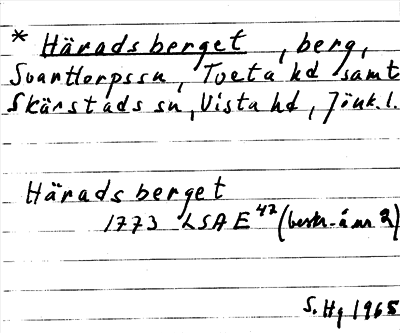 * Häradsberget, berg,
Svarttorps sn, Tveta hd samt
Skärstads sn, Vista hd, Jönk. l.
Häradsberget
1773 LSA E 42 (beskr. å nr 2)
S. Hg 1965